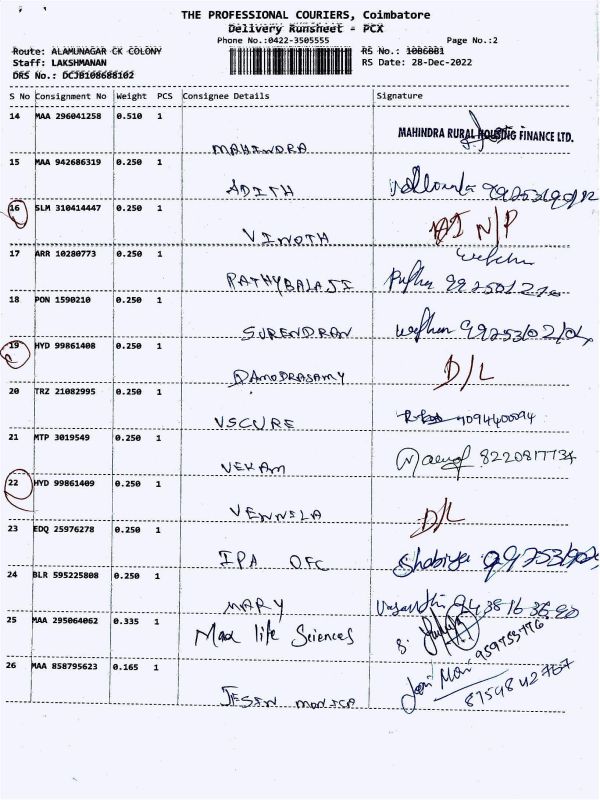 THE PROFESSIONAL COURIERS, Coimbatore
Delivery Runsheet - PCX
Phone No.:0422-3505555 Page No.:2
Route: ALAMUNAGAR CK COLONY RS No.:
Staff: LAKSHMANAN RS Date: 28-Dec-2022
DRS No.: DCJB108688102
S No Consignment No Weight PCS Consignee Details Signature
14 MAA 296041258 0.510 1
MAHINDRA MAHINDRA RURAL HOUSING FINANCE LTD.
15 MAA 942686319 0.250 1
ADITH
16 SLM 310414447 0.250 1
VINOTH N/P
17 ARR 10280773 0.250 1
PATHYBALAJI
18 PON 1590210 0.250 1
SURENDRAN
19 HYD 99861408 0.250 1
DAMODRASAMY D/L
20 TRZ 21082995 0.250 1
VSCURE 9094400094
21 MTP 3019549 0.250 1
VEKAM 8220817734
22 HYD 99861409 0.250 1
VENNSLA D/L
23 EDQ 25976278 0.250 1
IPA OFC
24 BLR 595225808 0.250 1
MARY
25 MAA 295064062 0.335 1
Max life Sciences
26 MAA 858795623 0.165 1
JESIN MONICA